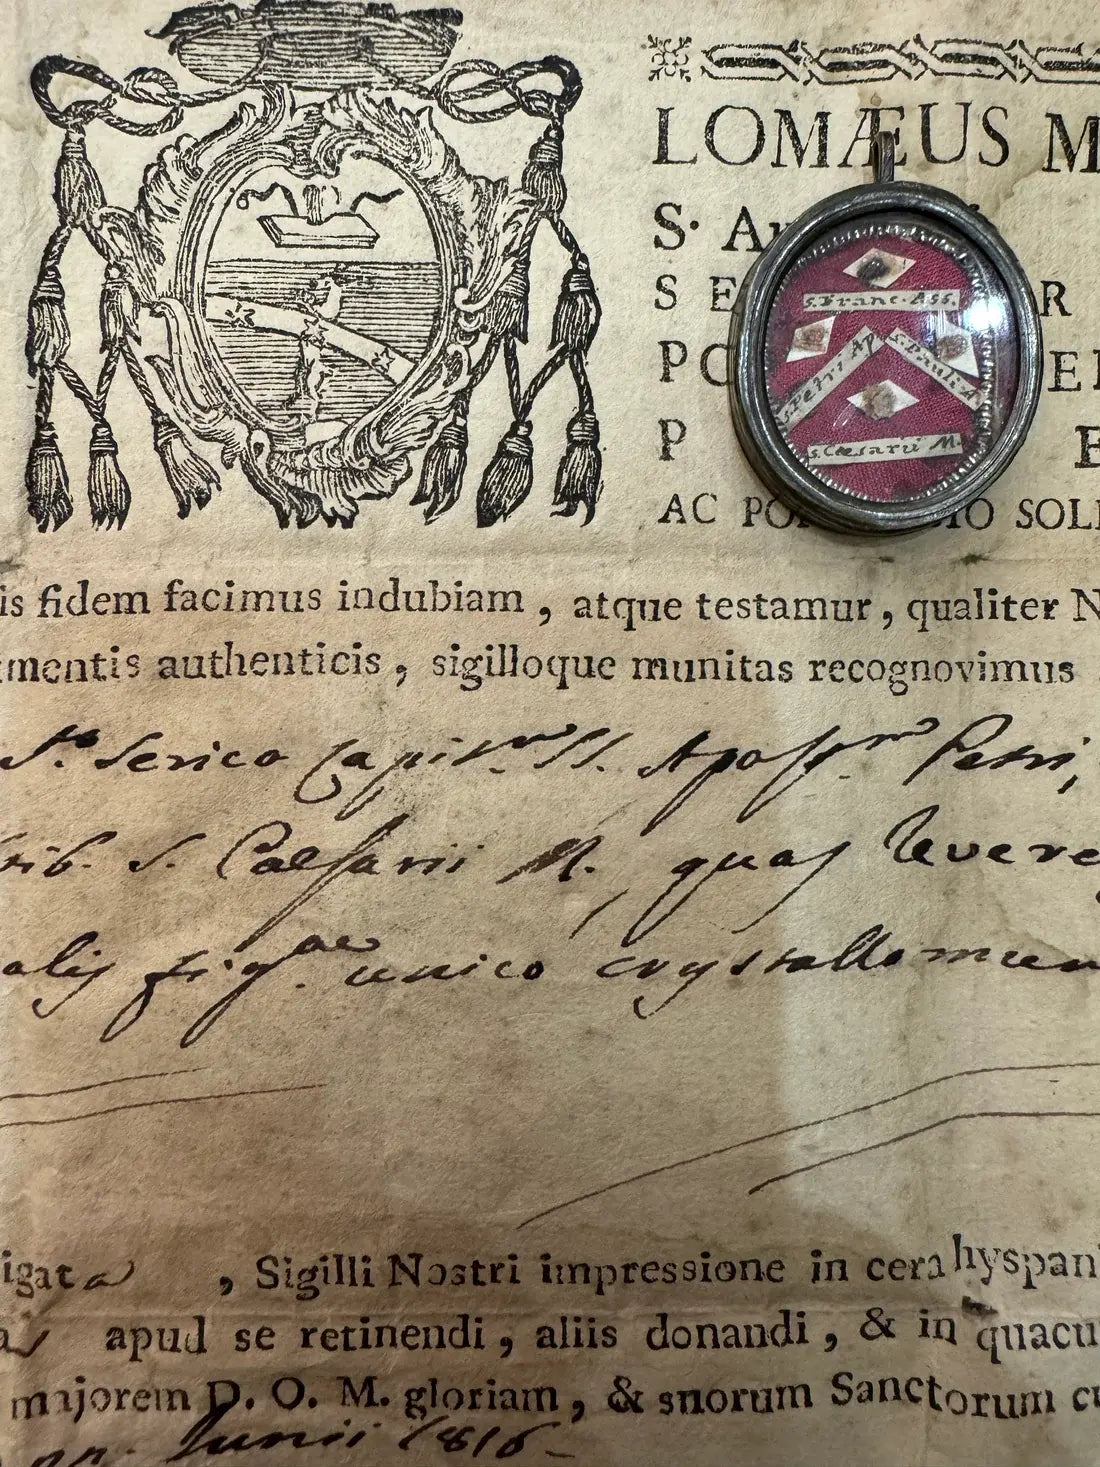 LOMÆUS M
S. A
S E R
P
P E
AC PO IO SOLI
S. Franc. Ass.
S. Petri Ap
S. Pauli A
S. Cæsarii M.
is fidem facimus indubiam, atque testamur, qualiter N
mentis authenticis, sigilloque munitas recognovimus
Serico SS. Petri,
S. Caesarii M. quas Revere
alis unico crystallo mun
igata, Sigilli Nostri impressione in cera hyspan
apud se retinendi, aliis donandi, & in quacu
majorem D. O. M. gloriam, & snorum Sanctorum cu
Junii 1816